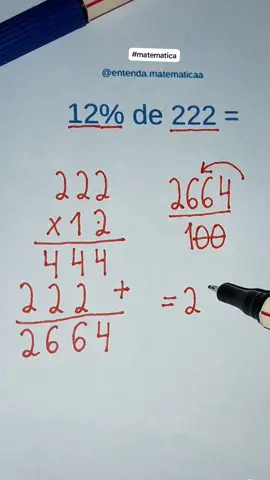 #matematica
@entenda.matematicaa
12% de 222 =
222
x12
444
222 +
2664
2664
100
= 2